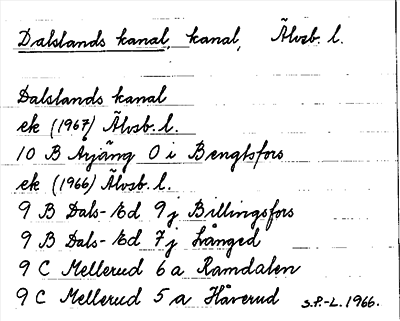 Dalslands kanal, kanal, Älvsb. l.
Dalslands kanal
ek (1967) Älvsb. l.
10 B Årjäng 0 i Bengtsfors
ek (1966) Älvsb. l.
9 B Dals-Ed 9 j Billingsfors
9 B Dals-Ed 7 j Långed
9 C Mellerud 6 a Ramdalen
9 C Mellerud 5 a Håverud S.P.-L. 1966.